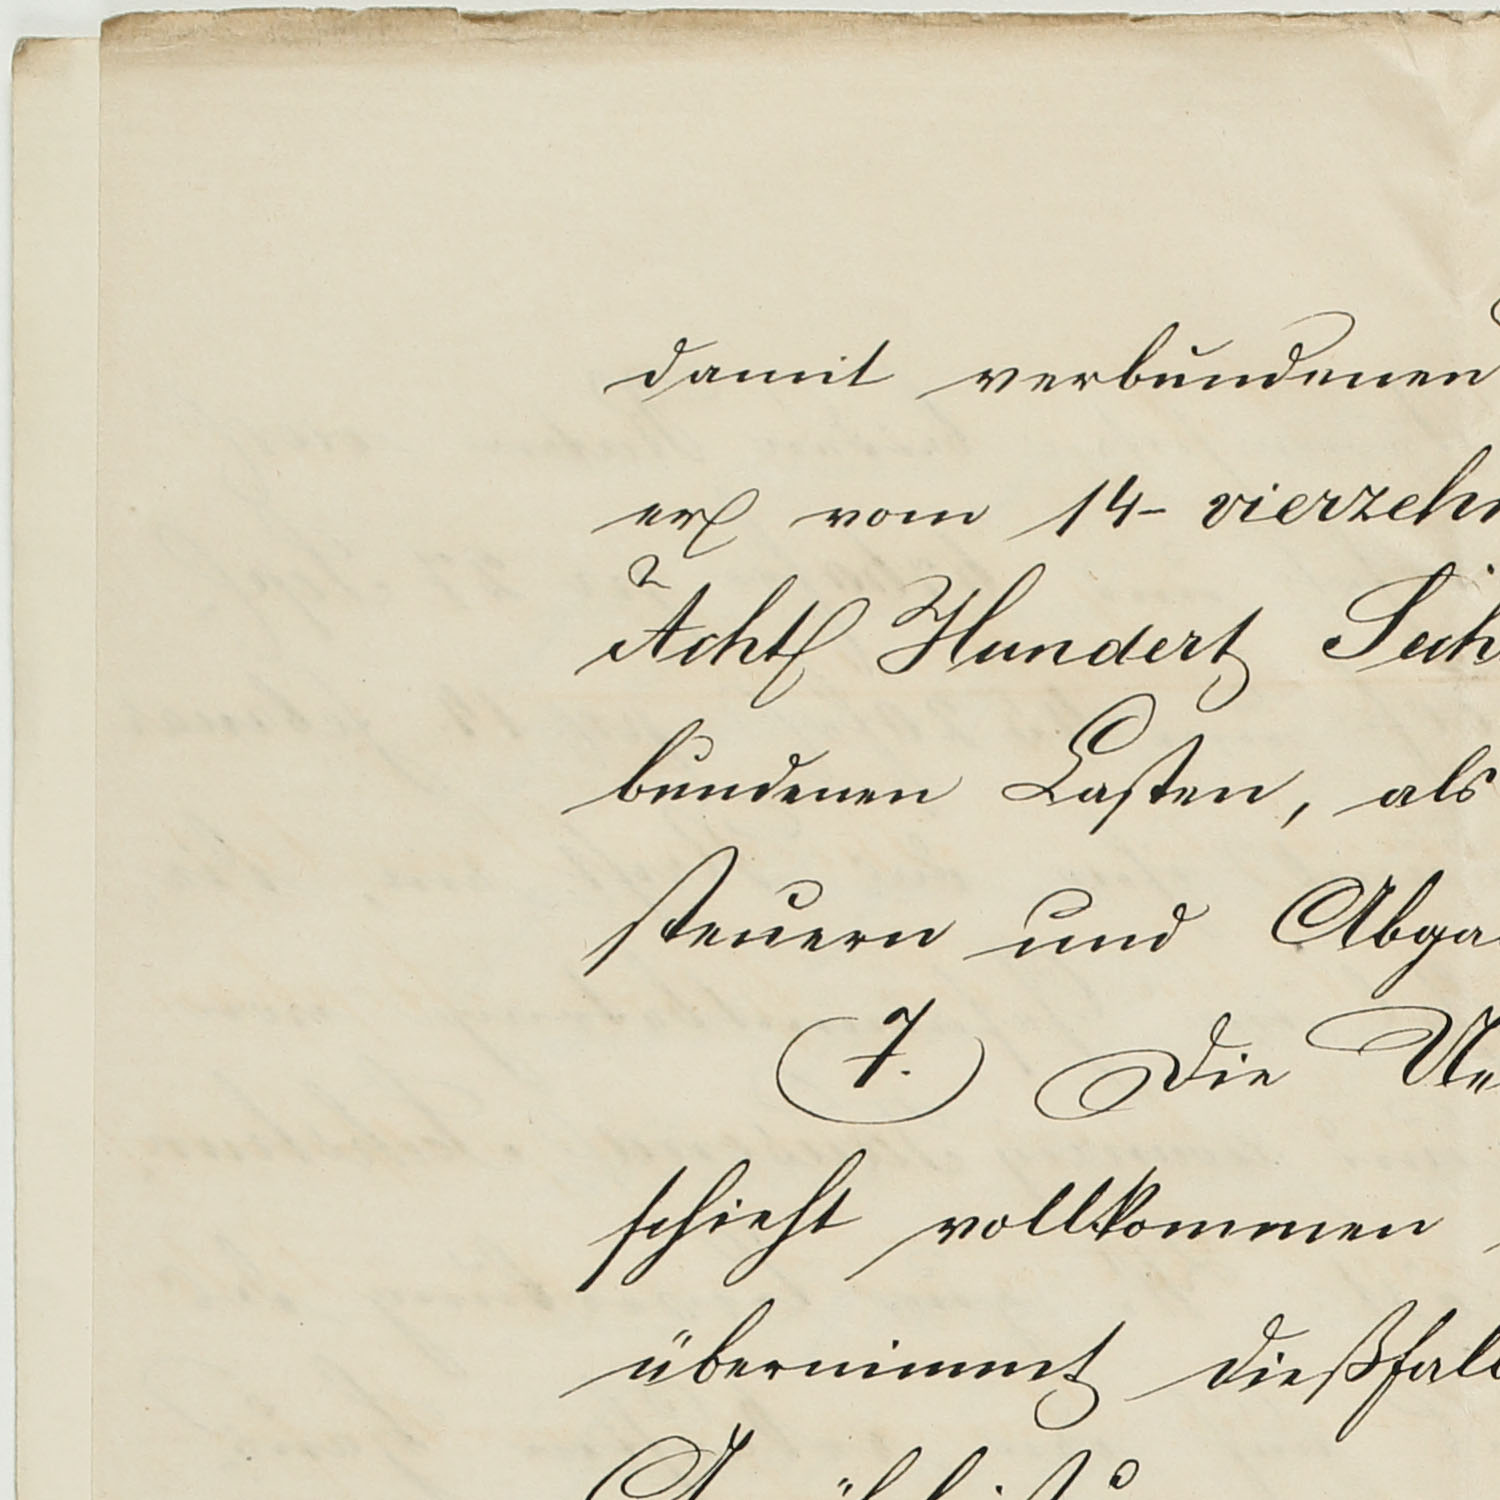 damit verbundenen
er vom 14- vierzehn
Acht Hundert Sech
bundenen Lasten, als
steuern und Abga
7. Die Ue
schieht vollkommen
übernimmt dießfall